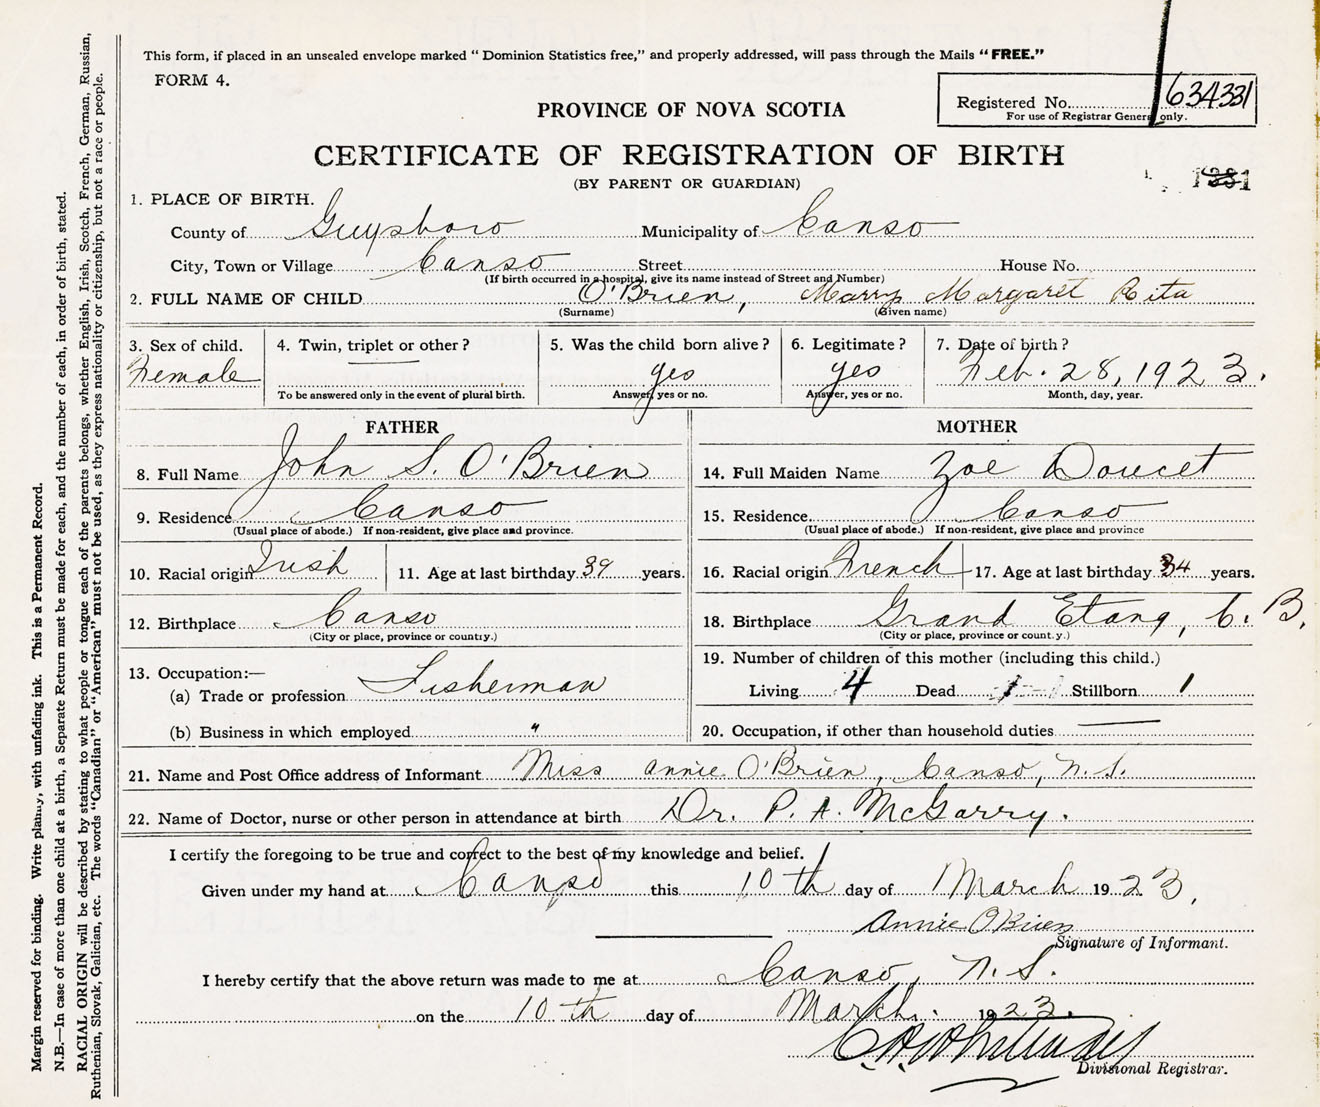 This form, if placed in an unsealed envelope marked "Dominion Statistics free," and properly addressed, will pass through the Mails "FREE."
FORM 4.
Registered No. 634331
For use of Registrar General only.
PROVINCE OF NOVA SCOTIA
CERTIFICATE OF REGISTRATION OF BIRTH
(BY PARENT OR GUARDIAN)
1. PLACE OF BIRTH.
County of Guysboro Municipality of Canso
City, Town or Village Canso Street House No.
(If birth occurred in a hospital, give its name instead of Street and Number)
2. FULL NAME OF CHILD O'Brien, Marry Margaret Rita
(Surname) (Given name)
3. Sex of child. 4. Twin, triplet or other? 5. Was the child born alive? 6. Legitimate? 7. Date of birth?
Female yes yes Feb. 28, 1923.
To be answered only in the event of plural birth. Answer, yes or no. Answer, yes or no. Month, day, year.
FATHER MOTHER
8. Full Name John S. O'Brien 14. Full Maiden Name Zoe Doucet
9. Residence Canso 15. Residence Canso
(Usual place of abode.) If non-resident, give place and province. (Usual place of abode.) If non-resident, give place and province
10. Racial origin Irish 11. Age at last birthday 39 years. 16. Racial origin French 17. Age at last birthday 34 years.
12. Birthplace Canso 18. Birthplace Grand Etang, C. B.
(City or place, province or country.) (City or place, province or county.)
13. Occupation:— 19. Number of children of this mother (including this child.)
(a) Trade or profession Fisherman Living 4 Dead 1 Stillborn 1
(b) Business in which employed " 20. Occupation, if other than household duties
21. Name and Post Office address of Informant Miss Annie O'Brien, Canso, N.S.
22. Name of Doctor, nurse or other person in attendance at birth Dr. P. A. McGarry.
I certify the foregoing to be true and correct to the best of my knowledge and belief.
Given under my hand at Canso this 10th day of March 1923.
Annie O'Brien
Signature of Informant.
I hereby certify that the above return was made to me at Canso, N.S.
on the 10th day of March. 1923.
Divisional Registrar.
Margin reserved for binding. Write plainly, with unfading ink. This is a Permanent Record.
N.B.—In case of more than one child at a birth, a Separate Return must be made for each, and the number of each, in order of birth, stated.
RACIAL ORIGIN will be described by stating to what people or tongue each of the parents belongs, whether English, Irish, Scotch, French, German, Russian,
Ruthenian, Slovak, Galician, etc. The words "Canadian" or "American" must not be used, as they express nationality or citizenship, but not a race or people.